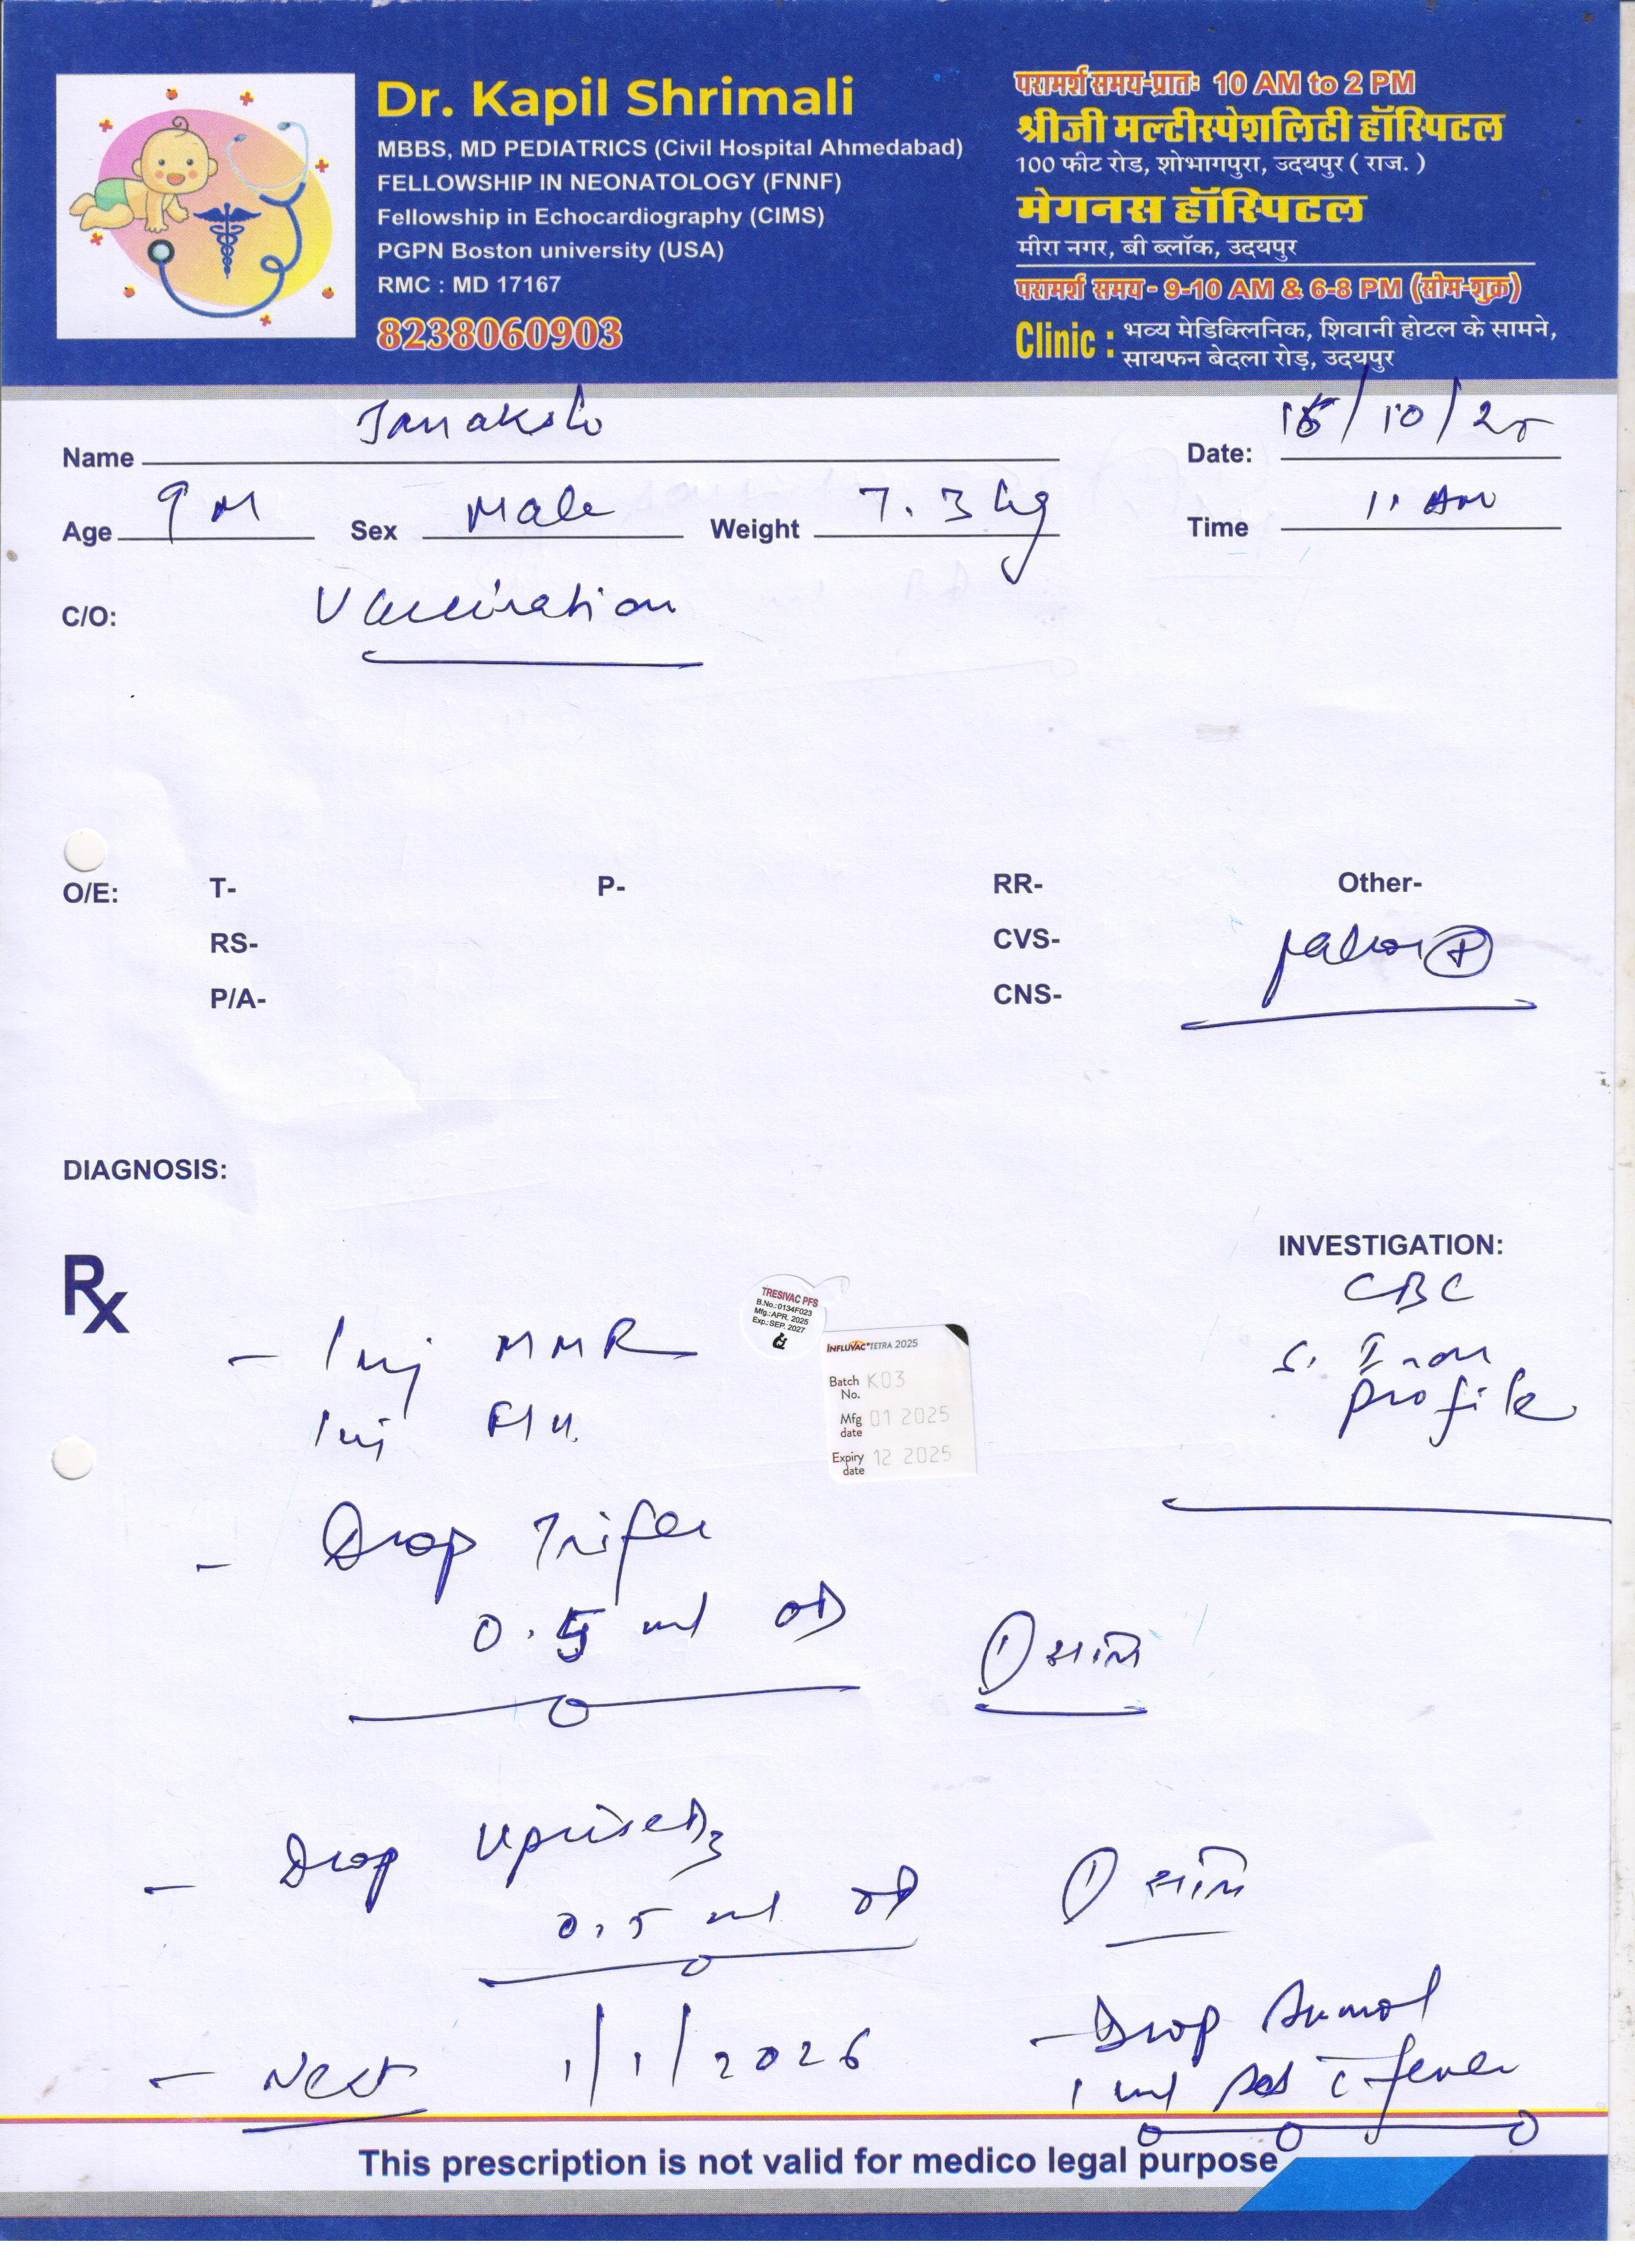 Dr. Kapil Shrimali
MBBS, MD PEDIATRICS (Civil Hospital Ahmedabad)
FELLOWSHIP IN NEONATOLOGY (FNNF)
Fellowship in Echocardiography (CIMS)
PGPN Boston university (USA)
RMC : MD 17167
8238060903
परामर्श समय-प्रातः 10 AM to 2 PM
श्रीजी मल्टीस्पेशलिटी हॉस्पिटल
100 फीट रोड, शोभागपुरा, उदयपुर ( राज. )
मेगनस हॉस्पिटल
मीरा नगर, बी ब्लॉक, उदयपुर
परामर्श समय - 9-10 AM & 6-8 PM (सोम-शुक्र)
Clinic : भव्य मेडिक्लिनिक, शिवानी होटल के सामने,
सायफन बेदला रोड़, उदयपुर
Name Date: /10/25
Age 9 M Sex Male Weight 7.3 kg Time 11 AM
C/O: Vaccination
O/E: T- P- RR- Other-
RS- CVS- pallor +
P/A- CNS-
DIAGNOSIS:
Rx
INVESTIGATION:
CBC
S. Iron
profile
- Inj MMR
Inj Flu
TRESIVAC PFS
B.No.:0134F023
Mfg.:APR. 2025
Exp.:SEP. 2027
INFLUVAC TETRA 2025
Batch No. K03
Mfg date 01 2025
Expiry date 12 2025
- Drop Trifer
0.5 ml OD
- Drop Uprise D3
0.5 ml OD
- Next 1/1/2026
- Drop
1 ml fever
This prescription is not valid for medico legal purpose